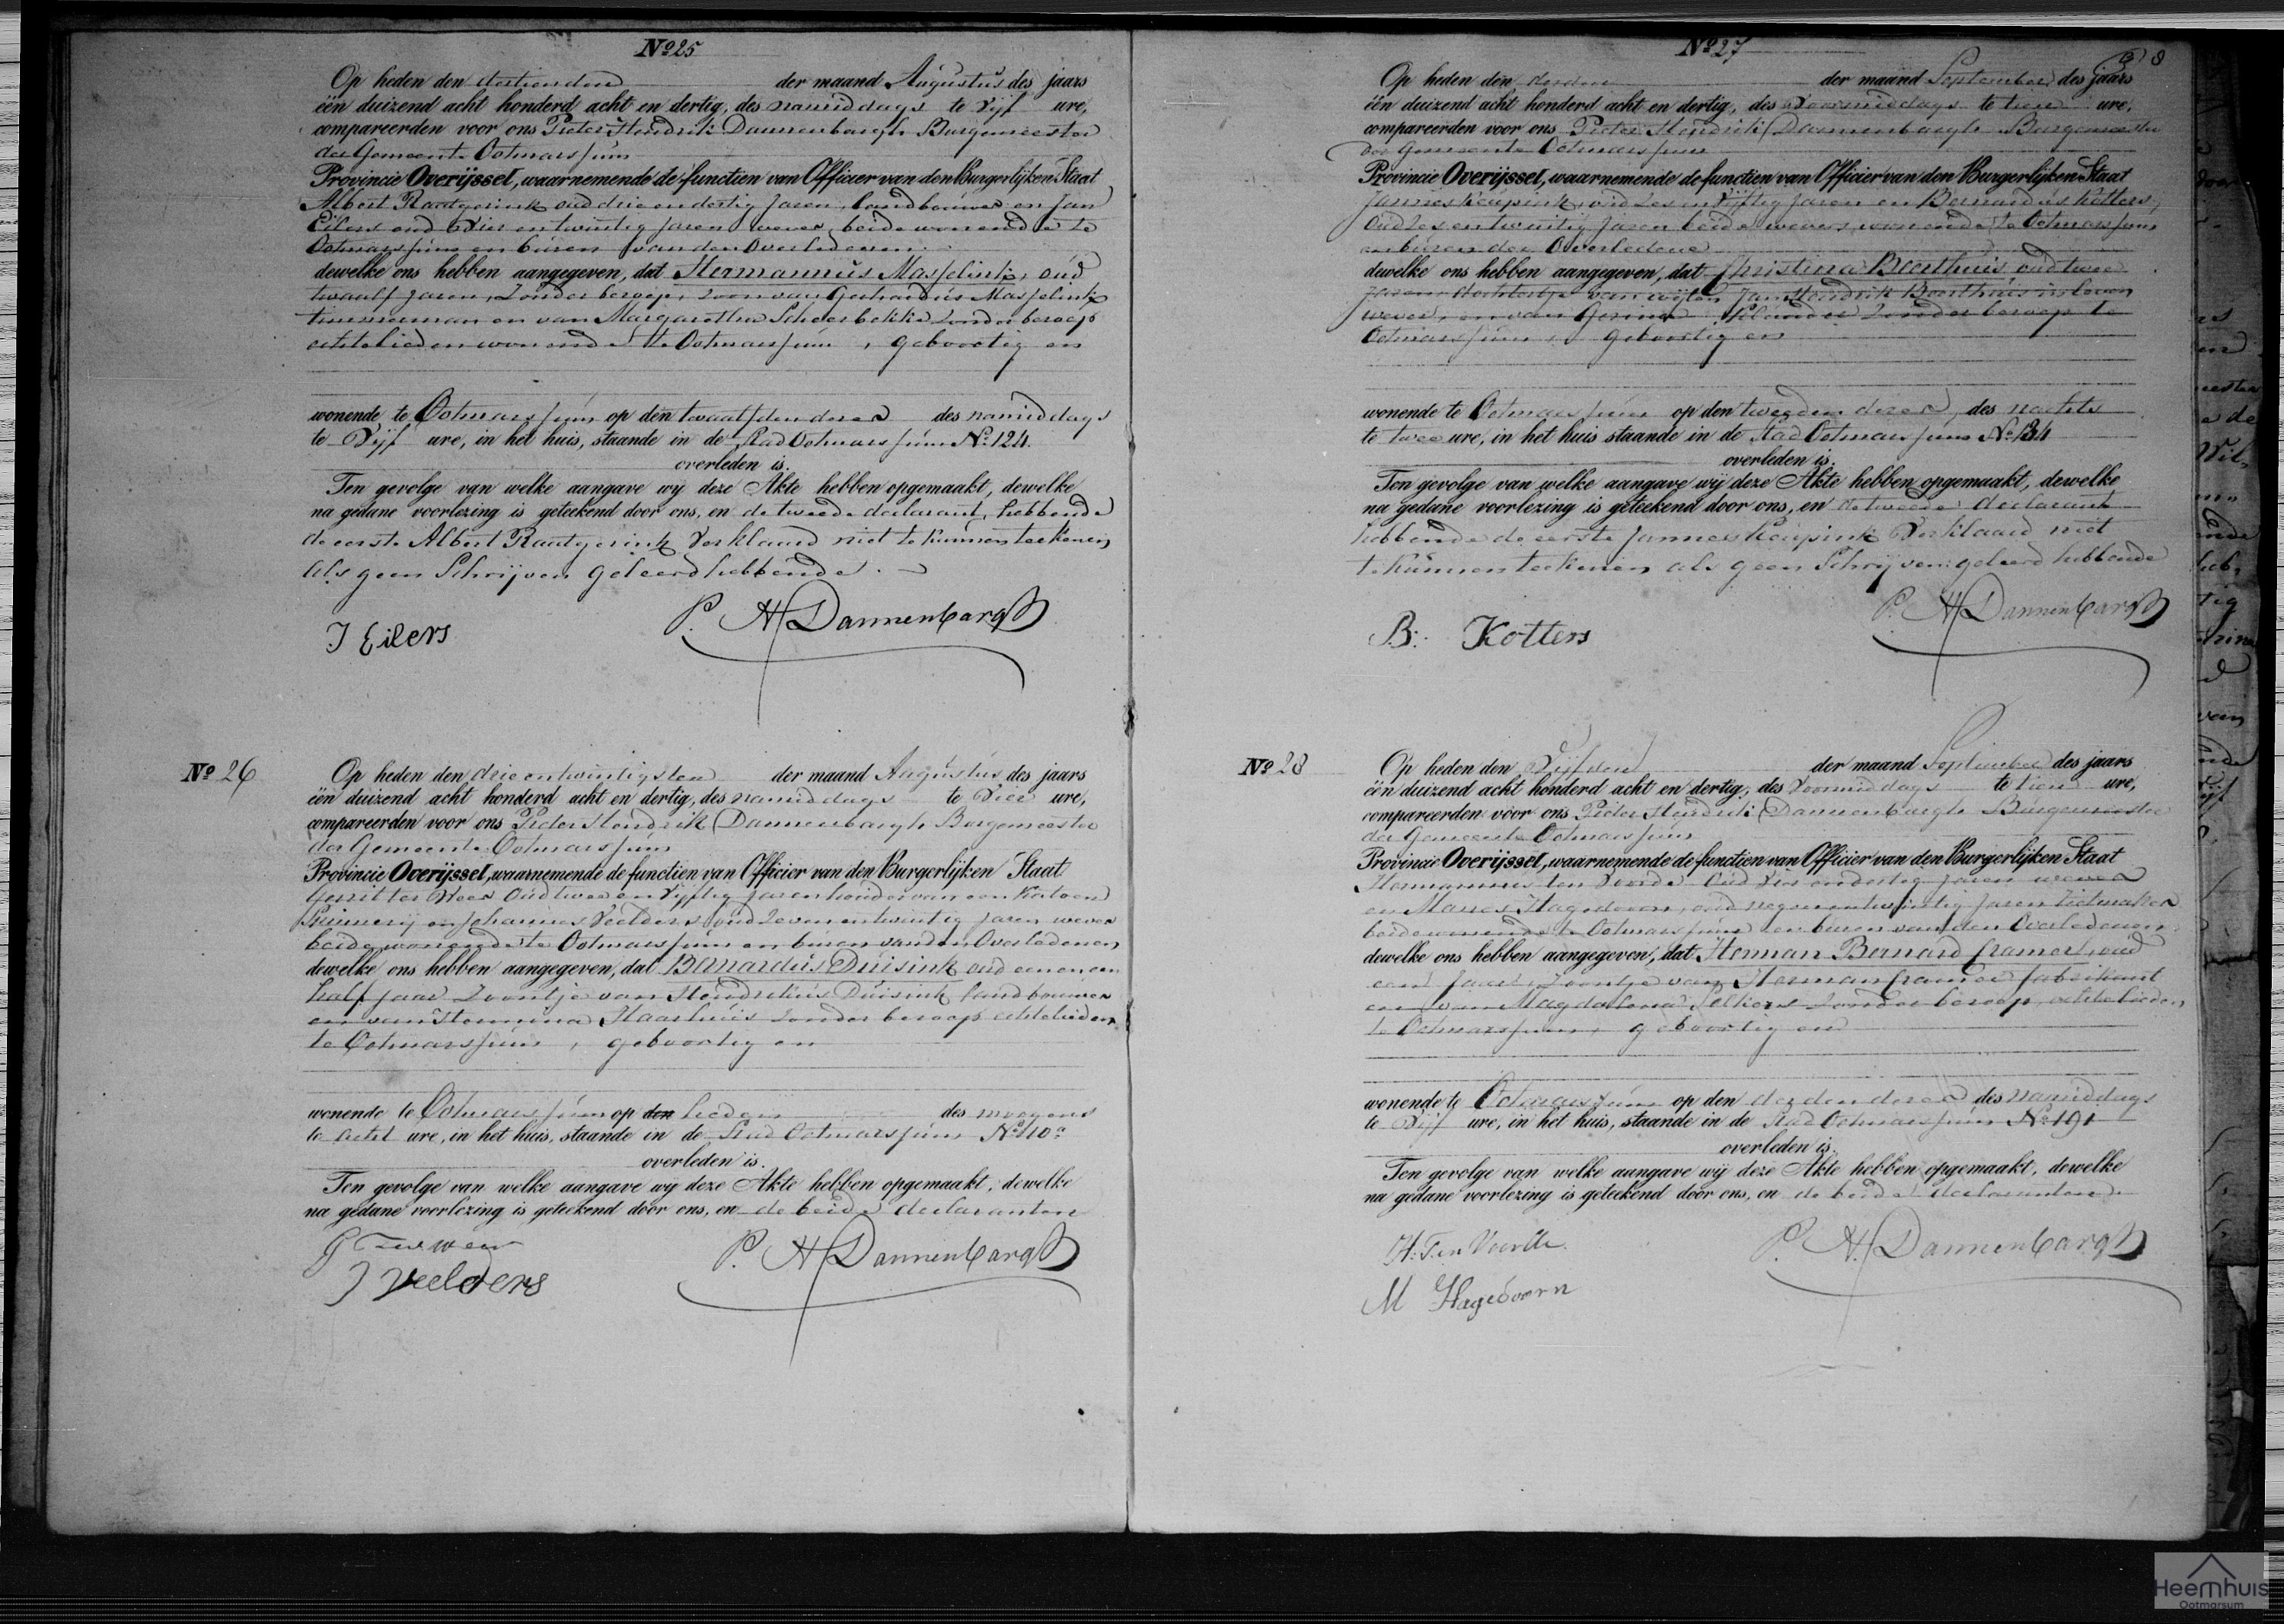 Nº 25
Op heden den dertienden der maand Augustus des jaars
één duizend acht honderd acht en dertig, des namiddags te Vijf ure,
compareerden voor ons Pieter Hendrik Dannenbargh Burgemeester
der Gemeente Ootmarssum
Provincie Overijssel, waarnemende de functien van Officier van den Burgerlijken Staat
Albert oud drie en dertig Jaren, landbouwer en Jan
Eilers oud Vier en twintig Jaren wever, beide wonende te
Ootmarssum en buren van den Overledenen
dewelke ons hebben aangegeven, dat Hermannus Masselink, oud
twaalf Jaren, Zonder beroep, zoon van Gerhardus Masselink
timmerman en van Margaretha Scheerbekke Zonder beroep
echtelieden wonende te Ootmarssum, geboortig en
wonende te Ootmarssum op den twaalfden dezer des namiddags
te Vijf ure, in het huis, staande in de Stad Ootmarssum Nº 124
overleden is.
Ten gevolge van welke aangave wij deze Akte hebben opgemaakt, dewelke
na gedane voorlezing is geteekend door ons, en de tweede declarant, hebbende
de eerste Albert Verklaard niet te kunnen teekenen
als geen Schrijven geleerd hebbende.
P. H. Dannenbargh
J Eilers
Nº 26
Op heden den drie en twintigsten der maand Augustus des jaars
één duizend acht honderd acht en dertig, des namiddags te Vier ure,
compareerden voor ons Pieter Hendrik Dannenbargh Burgemeester
der Gemeente Ootmarssum
Provincie Overijssel, waarnemende de functien van Officier van den Burgerlijken Staat
Gerrit ter Weer Oud twee en Vijftig Jaren houder van een Katoen
Spinnerij en Johannes Veelders oud Zeven en twintig Jaren wever
beide wonende te Ootmarssum en buren van den Overledenen
dewelke ons hebben aangegeven, dat Bernardus Duisink oud een en een
half jaar Zoontje van Hendrikus Duisink landbouwer
en van Hermina Haarhuis zonder beroep echtelieden
te Ootmarssum, geboortig en
wonende te Ootmarssum op den heden des morgens
te acht ure, in het huis, staande in de Stad Ootmarssum Nº 110a
overleden is.
Ten gevolge van welke aangave wij deze Akte hebben opgemaakt, dewelke
na gedane voorlezing is geteekend door ons, en de beide declaranten
P. H. Dannenbargh
J Veelders
Nº 27
8
Op heden den derden der maand September des jaars
één duizend acht honderd acht en dertig, des Voormiddags te tien ure,
compareerden voor ons Pieter Hendrik Dannenbargh Burgemeester
der Gemeente Ootmarssum
Provincie Overijssel, waarnemende de functien van Officier van den Burgerlijken Staat
Jannes oud Zes en Vijftig Jaren en Bernardus Kötters,
Oud Zes en twintig Jaren beide wevers wonende te Ootmarssum
en buren der Overledene
dewelke ons hebben aangegeven, dat Christina Boerthuis oud twee
Jaren dochtertje van wijlen Jan Hendrik Boerthuis in leven
wever, en van zonder beroep te
Ootmarssum, geboortig en
wonende te Ootmarssum op den tweeden dezer, des nachts
te twee ure, in het huis staande in de Stad Ootmarssum Nº 134
overleden is.
Ten gevolge van welke aangave wij deze Akte hebben opgemaakt, dewelke
na gedane voorlezing is geteekend door ons, en de tweede declarant
hebbende de eerste Jannes Verklaard niet
te kunnen teekenen als geen Schrijven geleerd hebbende
P. H. Dannenbargh
B: Kotters
Nº 28
Op heden den Vijfden der maand September des jaars
één duizend acht honderd acht en dertig, des Voormiddags te tien ure,
compareerden voor ons Pieter Hendrik Dannenbargh Burgemeester
der Gemeente Ootmarssum
Provincie Overijssel, waarnemende de functien van Officier van den Burgerlijken Staat
Hermannus ten Voorde Oud Vier en dertig Jaren wever
en Manes Hagedoorn, oud negen en twintig Jaren
beide wonende te Ootmarssum en buren van den Overledenen
dewelke ons hebben aangegeven, dat Herman Bernard Cramer, oud
een Jaar, Zoontje van Herman Cramer fabrikant
en van Magdalena zonder beroep, echtelieden
te Ootmarssum, geboortig en
wonende te Ootmarssum op den derden dezer des namiddags
te Vijf ure, in het huis, staande in de Stad Ootmarssum Nº 191
overleden is.
Ten gevolge van welke aangave wij deze Akte hebben opgemaakt, dewelke
na gedane voorlezing is geteekend door ons, en de beide declaranten
H: Ten Voorde
P. H. Dannenbargh
M Hagedoorn
Heemhuis
Ootmarsum